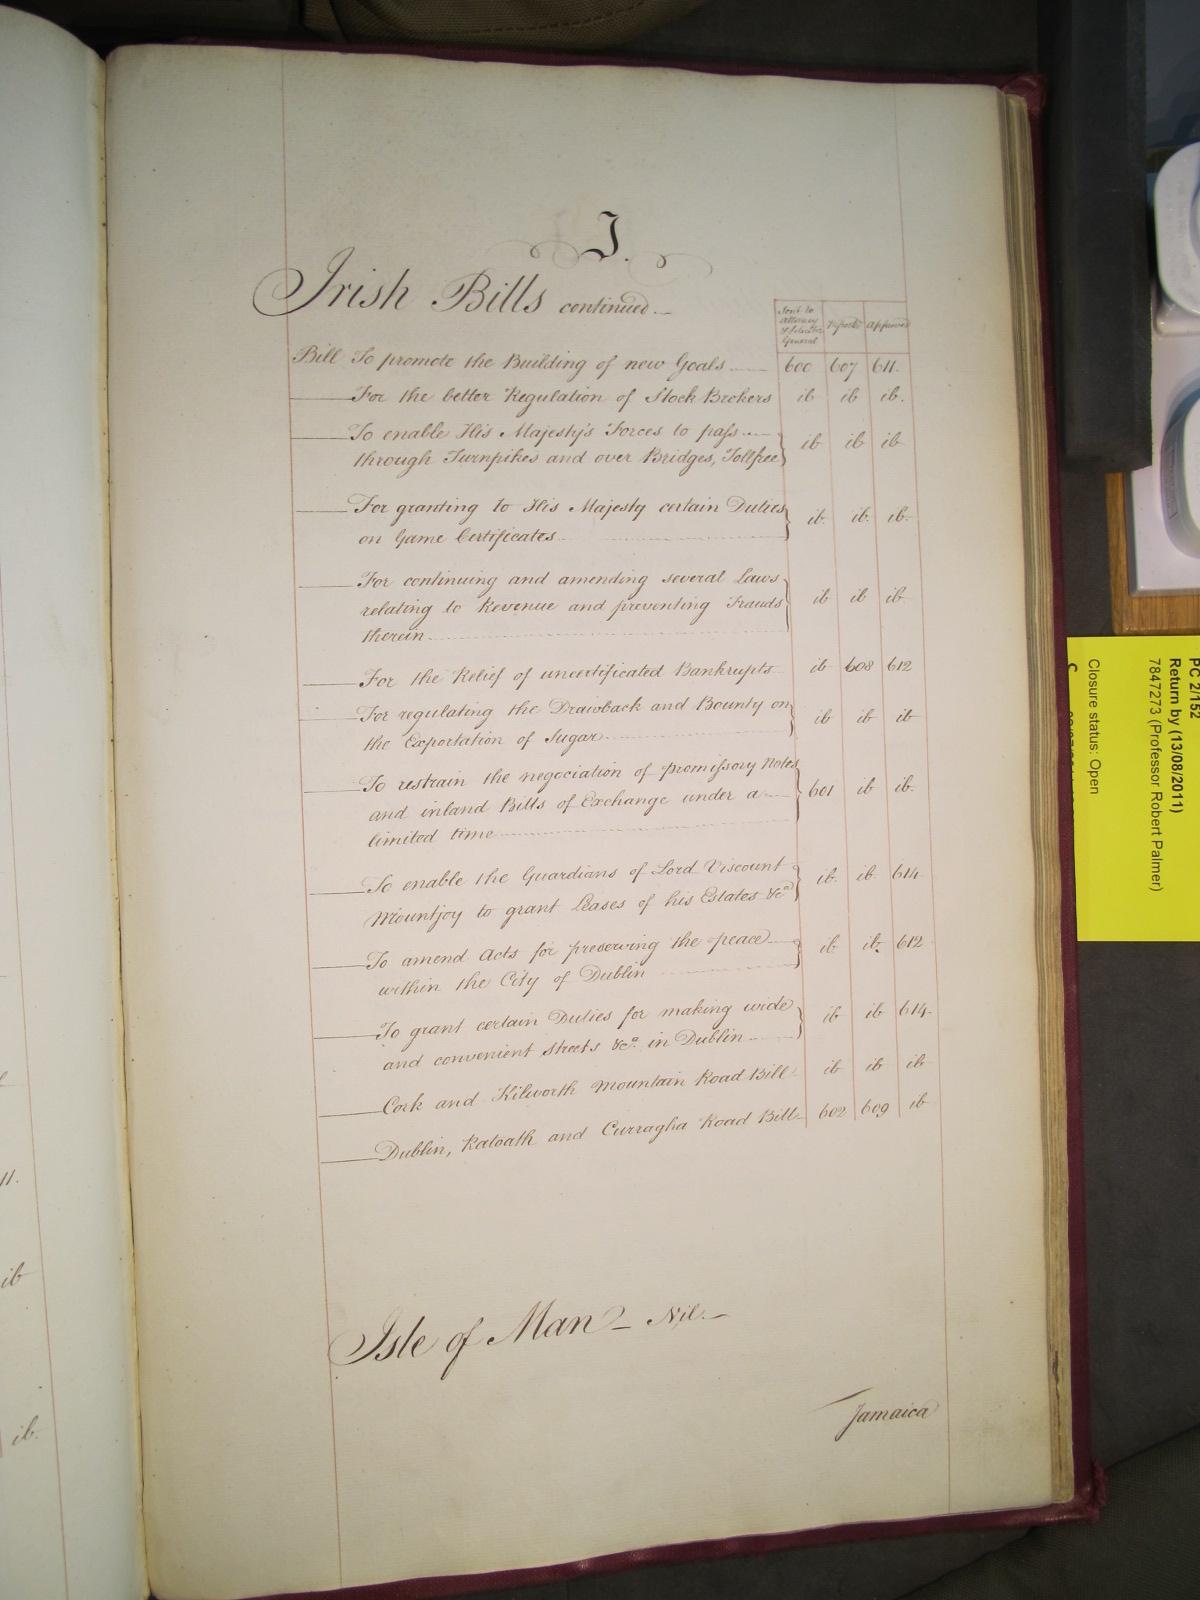 I.
Irish Bills continued
Sent to Attorney & Solicitor General Reports Approved
Bill To promote the Building of new Goals 600 607 611.
For the better Regulation of Stock Brokers ib ib ib.
To enable His Majesty's Forces to pass
through Turnpikes and over Bridges, Tollfree ib ib ib
For granting to His Majesty certain Duties
on Game Certificates ib. ib. ib.
For continuing and amending several Laws
relating to Revenue and preventing Frauds ib ib ib
therein
For the Relief of uncertificated Bankrupts ib 608 612
For regulating the Drawback and Bounty on
the Exportation of Sugar ib ib ib
To restrain the negociation of promissory Notes
and inland Bills of Exchange under a 601 ib ib.
limited time
To enable the Guardians of Lord Viscount
Mountjoy to grant Leases of his Estates &ca ib. ib. 614
To amend Acts for preserving the peace
within the City of Dublin ib ib. 612
To grant certain Duties for making wide
and convenient streets &ca. in Dublin ib ib 614
Cork and Kilworth Mountain Road Bill ib ib ib
Dublin, Ratoath and Curragha Road Bill 602 609 ib
Isle of Man Nil.
Jamaica
11.
ib
ib.
PC 2/152
Return by (13/08/2011)
7847273 (Professor Robert Palmer)
Closure status: Open